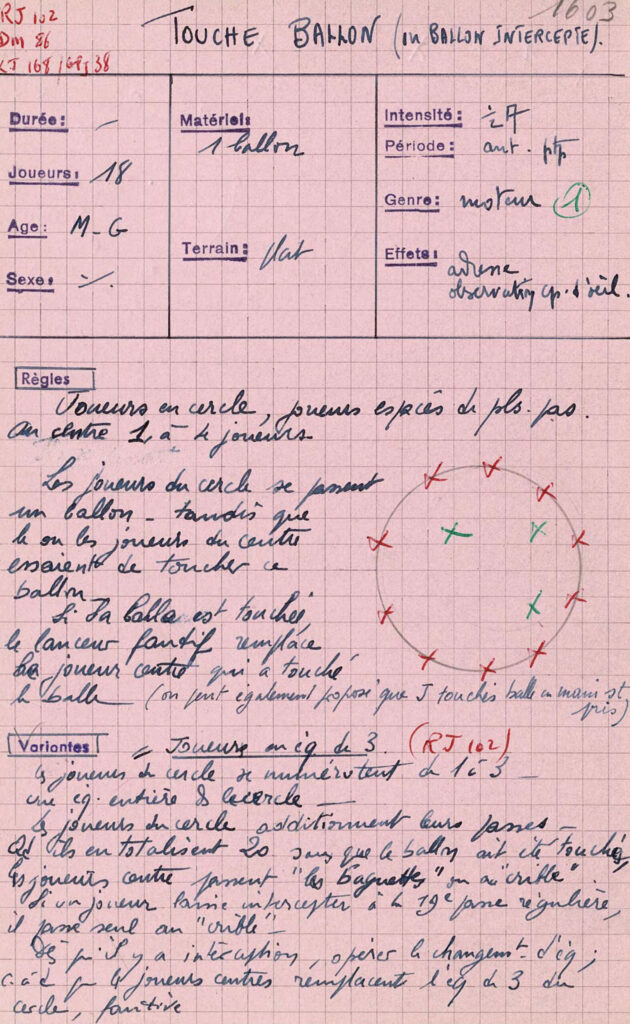 RJ 102
Dm 86
KJ 168/69/38
1603
TOUCHE BALLON (ou BALLON INTERCEPTE).
Durée: –
Joueurs: 18
Age: M-G
Sexe:
Matériel:
1 ballon
Terrain: plat
Intensité:
Période: ant. ptp
Genre: moteur 1
Effets: adresse
observation cp. d'œil.
Règles
Joueurs en cercle, joueurs espacés de pls. pas.
au centre 1 à 4 joueurs
Les joueurs du cercle se passent
un ballon - tandis que
le ou les joueurs du centre
essaient de toucher ce
ballon
Si la balle est touchée,
le lanceur fautif remplace
le joueur centre qui a touché
la balle (on peut également proposé que J touchés balle en main st
pris)
Variantes = Joueurs en éq de 3. (RJ 102)
les joueurs du cercle se numérotent de 1 à 3 -
une éq. entière ds le cercle -
Les joueurs du cercle additionnent leurs passes -
Qd ils en totalisent 20 sans que le ballon ait été touché,
les joueurs centre passent "les baguettes" ou au "crible".
Si un joueur laisse intercepter à la 19e passe régulière,
il passe seul au "crible" -
Dès qu'il y a intéception, opérer le changemt d'éq ;
c.à d que les joueurs centres remplacent l'éq de 3 du
cercle, fautive